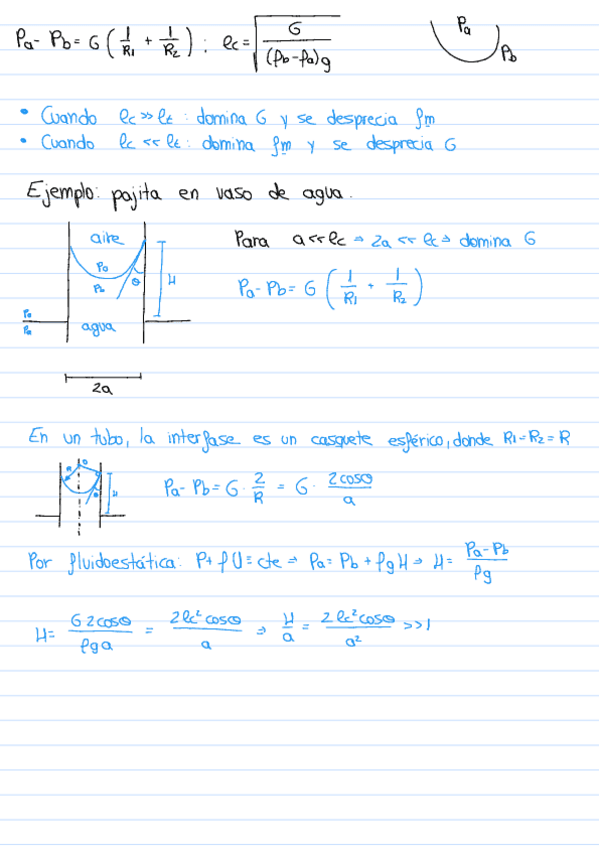 Pa - Pb = G ( 1/R1 + 1/R2 ) ; lc = √( G / (ρb - ρa)g )
Pa
Pb
• Cuando lc >> lt : domina G y se desprecia fm
• Cuando lc << lt : domina fm y se desprecia G
Ejemplo: pajita en vaso de agua.
aire
Para a << lc ⇒ 2a << lc ⇒ domina G
Pa
Pb
θ
H
Pa - Pb = G ( 1/R1 + 1/R2 )
Pa
Pa
agua
2a
En un tubo, la interfase es un casquete esférico, donde R1 = R2 = R
Pa - Pb = G · 2/R = G · 2cosθ/a
H
Por fluidoestática: P + ρU = cte ⇒ Pa = Pb + ρgH ⇒ H = (Pa - Pb)/ρg
H = G2cosθ/ρga = 2lc²cosθ/a ⇒ H/a = 2lc²cosθ/a² >> 1